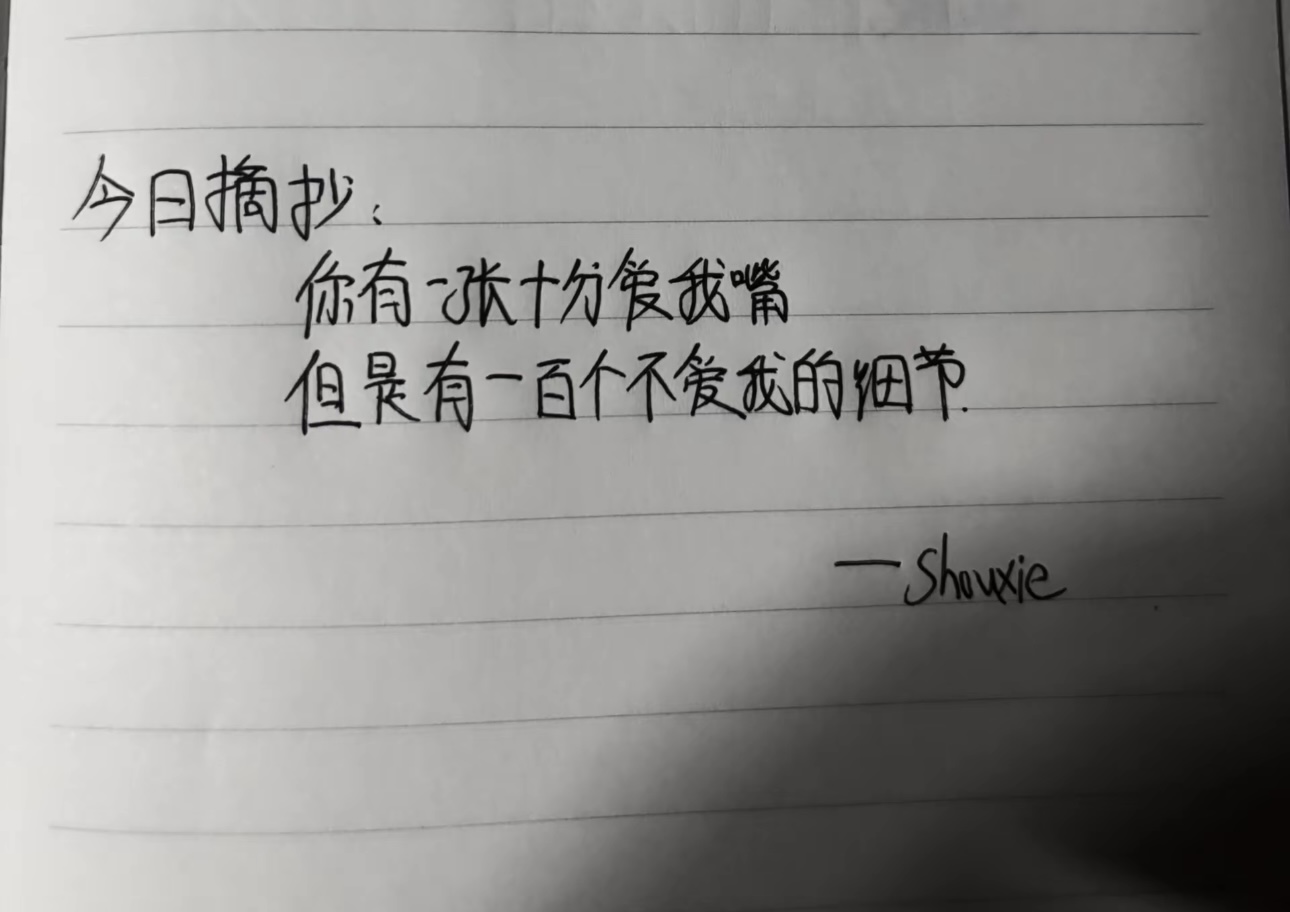 今日摘抄:
你有一张十分爱我嘴
但是有一百个不爱我的细节.
—Shouxie